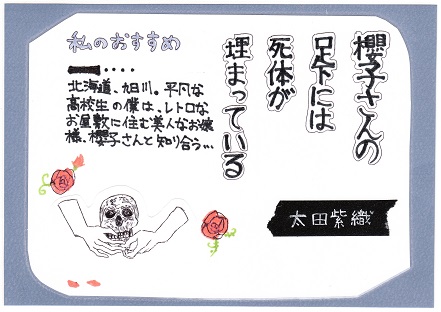 櫻子さんの
足下には
死体が
埋まっている
太田紫織
私のおすすめ
北海道、旭川。平凡な
高校生の僕は、レトロな
お屋敷に住む美人なお嬢
様、櫻子さんと知り合う…